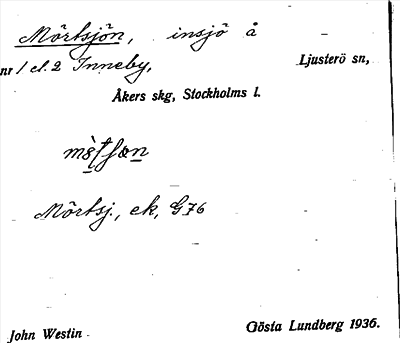 Mörtsjön, insjö å
nr 1 el. 2 Inneby, Ljusterö sn,
Åkers skg, Stockholms l.
Mörtsj., ek, G76
John Westin Gösta Lundberg 1936.